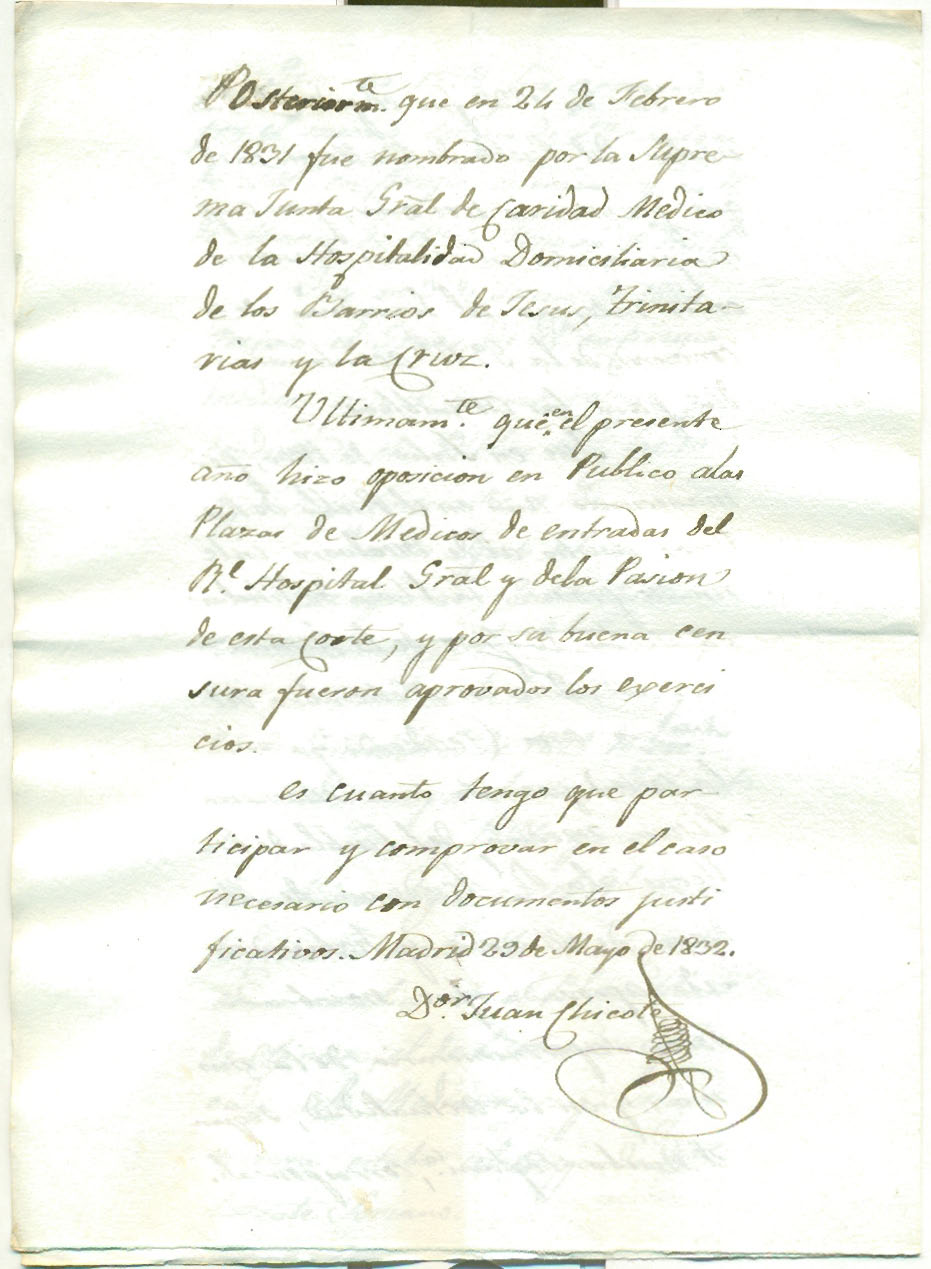 Posteriorm.te que en 24 de Febrero
de 1831 fue nombrado por la Supre-
ma Junta Gral de Caridad Medico
de la Hospitalidad Domiciliaria
de los Barrios de Jesus, Trinita-
rias y la Cruz.
Ultimam.te que en el presente
año hizo oposicion en Publico alas
Plazas de Medicos de entradas del
Rl. Hospital Gral y dela Pasion
de esta Corte, y por su buena cen
sura fueron aprovados los exerci
cios.
es cuanto tengo que par-
ticipar y comprovar en el caso
necesario con documentos justi
ficativos. Madrid 29 de Mayo de 1832.
Dor. Juan Chicote